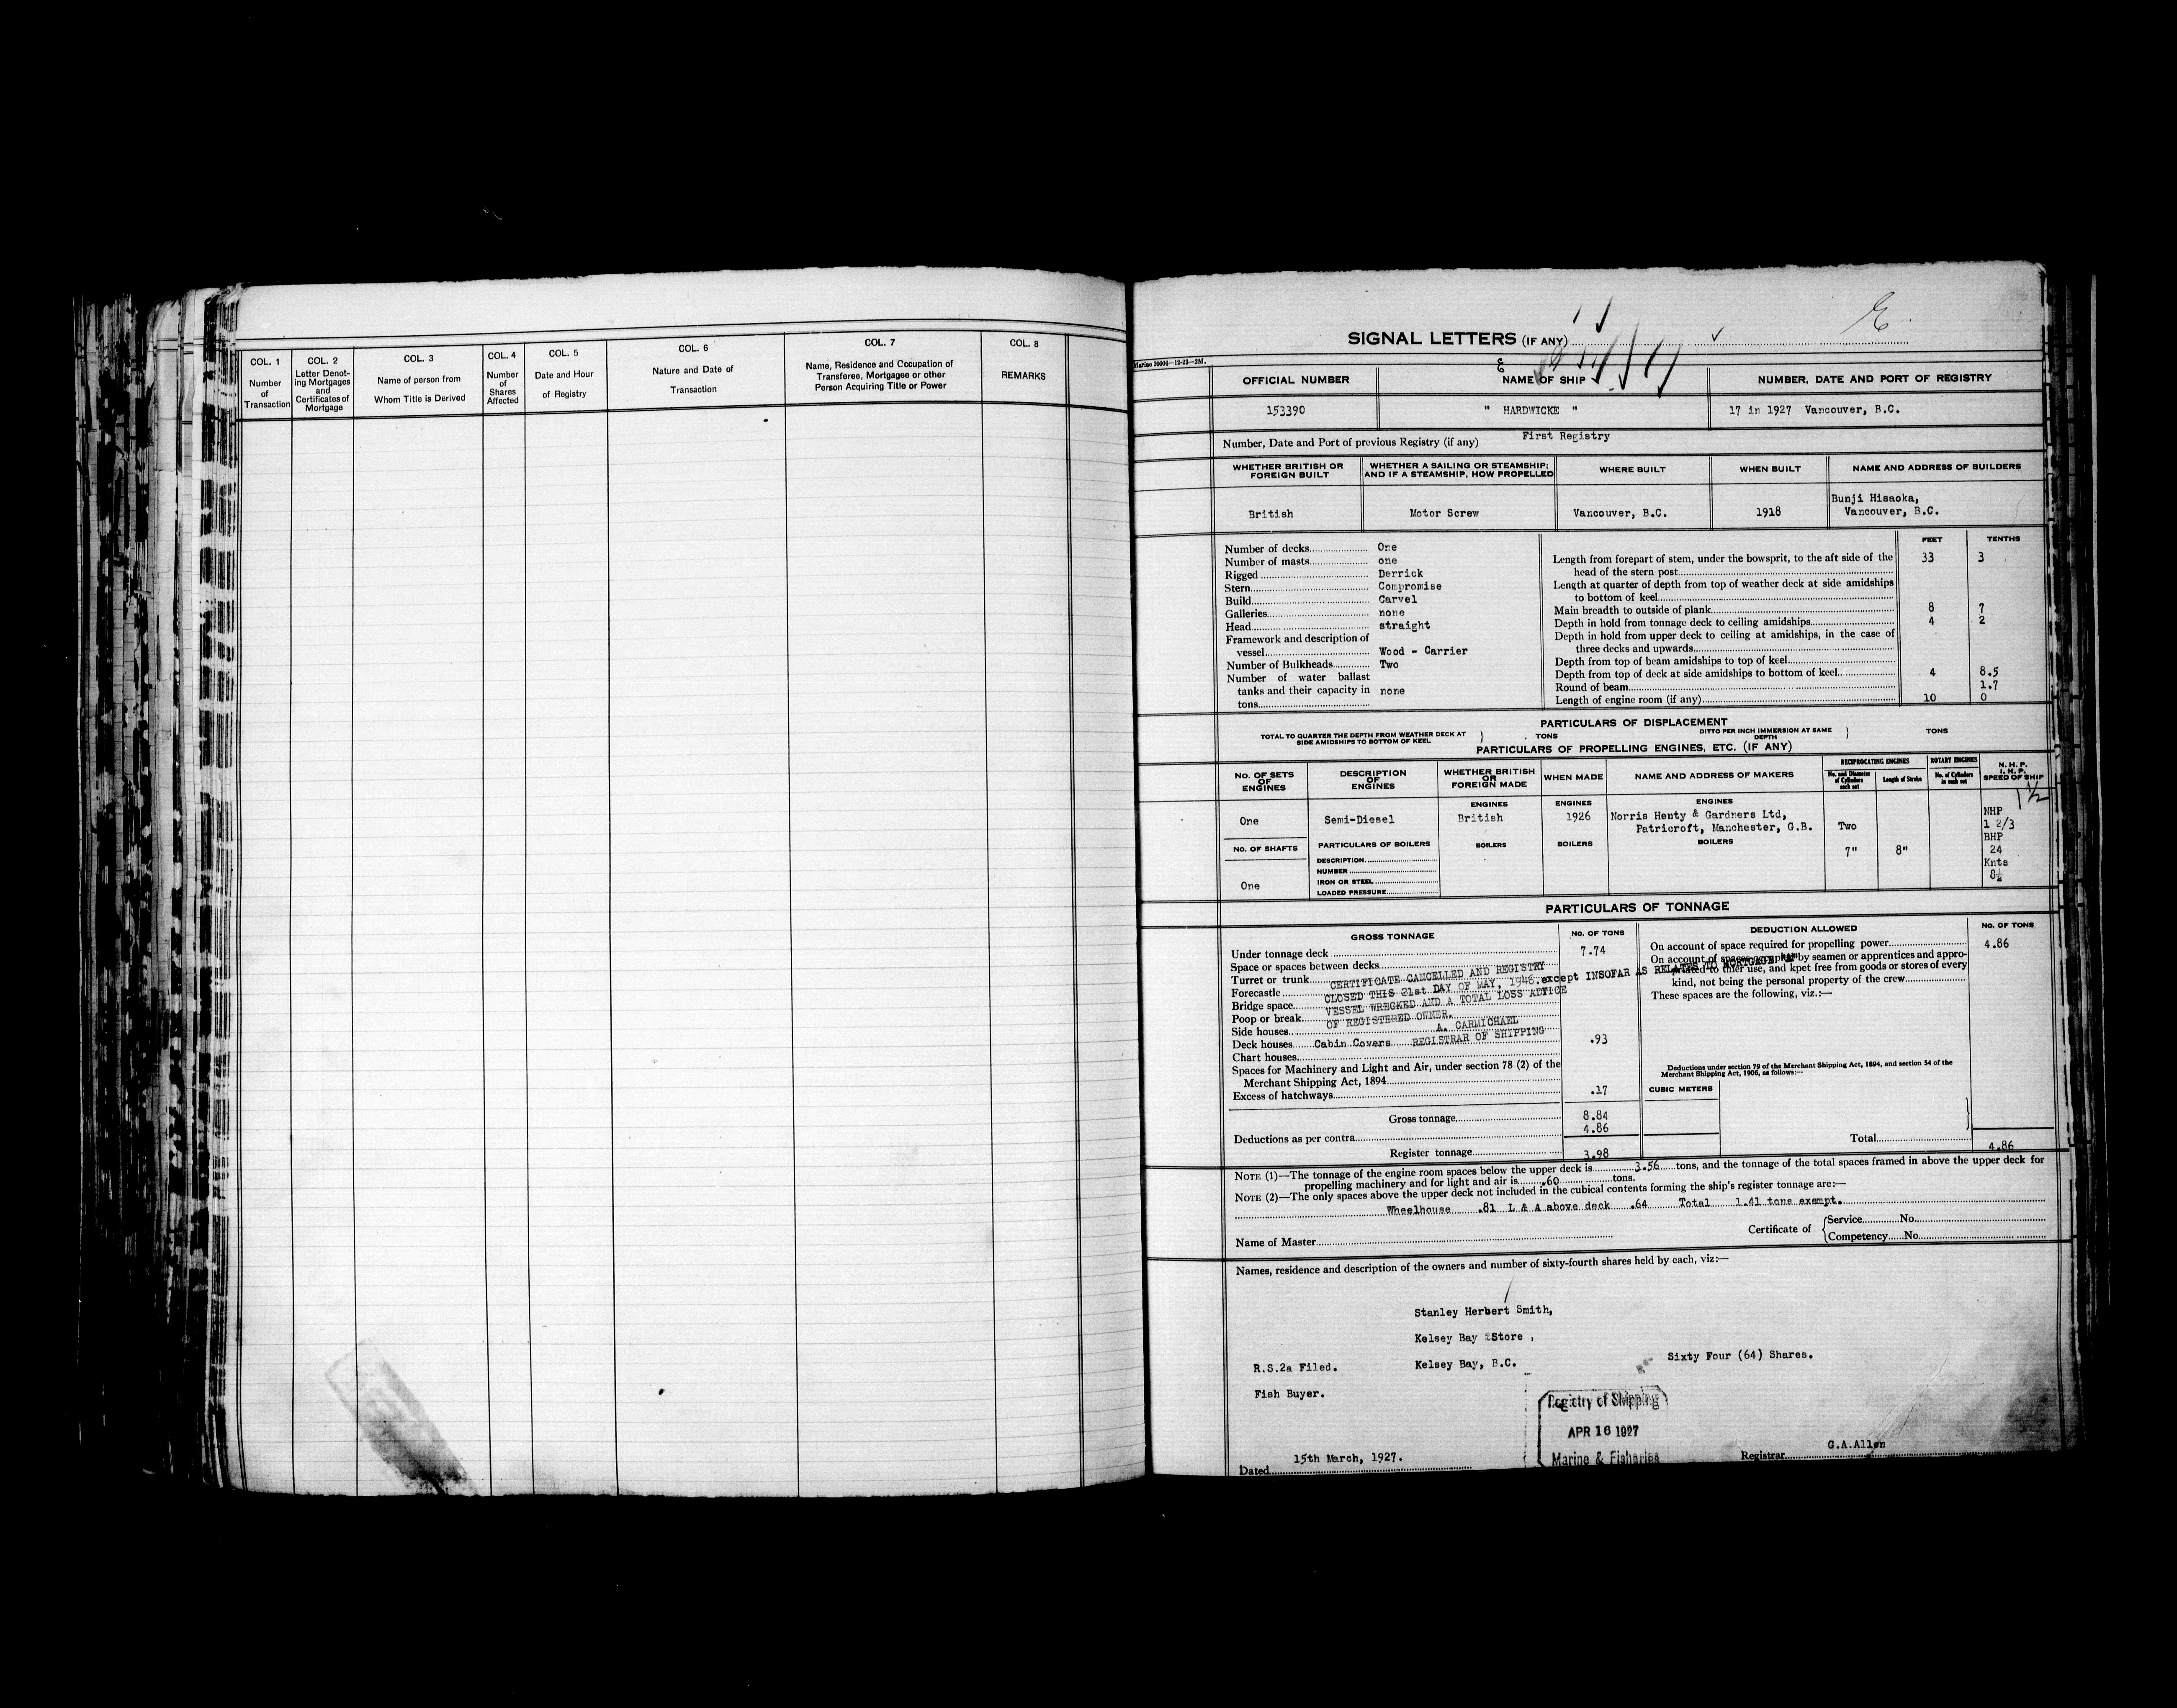 COL. 1
Number
of
Transaction
COL. 2
Letter Denot-
ing Mortgages
and
Certificates of
Mortgage
COL. 3
Name of person from
Whom Title is Derived
COL. 4
Number
of
Shares
Affected
COL. 5
Date and Hour
of Registry
COL. 6
Nature and Date of
Transaction
COL. 7
Name, Residence and Occupation of
Transferee, Mortgagee or other
Person Acquiring Title or Power
COL. 8
REMARKS
SIGNAL LETTERS (IF ANY)
Marine 20006—12-23—2M.
OFFICIAL NUMBER
NAME OF SHIP
NUMBER, DATE AND PORT OF REGISTRY
153390
" HARDWICKE "
17 in 1927 Vancouver, B.C.
Number, Date and Port of previous Registry (if any) First Registry
WHETHER BRITISH OR
FOREIGN BUILT
WHETHER A SAILING OR STEAMSHIP;
AND IF A STEAMSHIP, HOW PROPELLED
WHERE BUILT
WHEN BUILT
NAME AND ADDRESS OF BUILDERS
British
Motor Screw
Vancouver, B.C.
1918
Bunji Hisaoka,
Vancouver, B.C.
Number of decks One
Number of masts one
Rigged Derrick
Stern Compromise
Build Carvel
Galleries none
Head straight
Framework and description of
vessel Wood - Carrier
Number of Bulkheads Two
Number of water ballast
tanks and their capacity in none
tons
FEET TENTHS
Length from forepart of stem, under the bowsprit, to the aft side of the 33 3
head of the stern post
Length at quarter of depth from top of weather deck at side amidships
to bottom of keel
Main breadth to outside of plank 8 7
Depth in hold from tonnage deck to ceiling amidships 4 2
Depth in hold from upper deck to ceiling at amidships, in the case of
three decks and upwards
Depth from top of beam amidships to top of keel
Depth from top of deck at side amidships to bottom of keel 4 8.5
Round of beam 1.7
Length of engine room (if any) 10 0
PARTICULARS OF DISPLACEMENT
TOTAL TO QUARTER THE DEPTH FROM WEATHER DECK AT
SIDE AMIDSHIPS TO BOTTOM OF KEEL
TONS
DITTO PER INCH IMMERSION AT SAME
DEPTH
TONS
PARTICULARS OF PROPELLING ENGINES, ETC. (IF ANY)
No. OF SETS
OF
ENGINES
DESCRIPTION
OF
ENGINES
WHETHER BRITISH
OR
FOREIGN MADE
WHEN MADE
NAME AND ADDRESS OF MAKERS
RECIPROCATING ENGINES
No. and Diameter
of Cylinders
each set
Length of Stroke
ROTARY ENGINES
No. of Cylinders
in each set
N. H. P.
I. H. P.
SPEED OF SHIP
1½
One
Semi-Diesel
ENGINES
British
ENGINES
1926
ENGINES
Norris Henty & Gardners Ltd,
Patricroft, Manchester, G.B.
Two
7"
8"
NHP
1 2/3
BHP
24
Knts
8½
NO. OF SHAFTS
One
PARTICULARS OF BOILERS
DESCRIPTION
NUMBER
IRON OR STEEL
LOADED PRESSURE
BOILERS
BOILERS
BOILERS
PARTICULARS OF TONNAGE
GROSS TONNAGE
NO. OF TONS
Under tonnage deck 7.74
Space or spaces between decks
Turret or trunk
Forecastle
Bridge space
Poop or break
Side houses
Deck houses Cabin Covers .93
Chart houses
Spaces for Machinery and Light and Air, under section 78 (2) of the
Merchant Shipping Act, 1894
Excess of hatchways .17
Gross tonnage 8.84
Deductions as per contra 4.86
Register tonnage 3.98
CERTIFICATE CANCELLED AND REGISTRY
CLOSED THIS 21st DAY OF MAY, 1946. except INSOFAR AS RELATES TO MORTGAGE "A"
VESSEL WRECKED AND A TOTAL LOSS ADVICE
OF REGISTERED OWNER.
A. CARMICHAEL
REGISTRAR OF SHIPPING
DEDUCTION ALLOWED
NO. OF TONS
On account of space required for propelling power 4.86
On account of spaces occupied by seamen or apprentices and appro-
priated to thier use, and kpet free from goods or stores of every
kind, not being the personal property of the crew
These spaces are the following, viz.:—
Deductions under section 79 of the Merchant Shipping Act, 1894, and section 54 of the
Merchant Shipping Act, 1906, as follows:—
CUBIC METERS
Total 4.86
NOTE (1)—The tonnage of the engine room spaces below the upper deck is 3.56 tons, and the tonnage of the total spaces framed in above the upper deck for
propelling machinery and for light and air is .60 tons.
NOTE (2)—The only spaces above the upper deck not included in the cubical contents forming the ship's register tonnage are:—
Wheelhouse .81 L & A above deck .64 Total 1.41 tons exempt.
Name of Master
Certificate of
Service No.
Competency No.
Names, residence and description of the owners and number of sixty-fourth shares held by each, viz:—
Stanley Herbert Smith,
Kelsey Bay Store ,
R.S.2a Filed. Kelsey Bay, B.C. Sixty Four (64) Shares.
Fish Buyer.
Registry of Shipping
APR 16 1927
Marine & Fisheries
Dated 15th March, 1927.
Registrar G.A.Allen